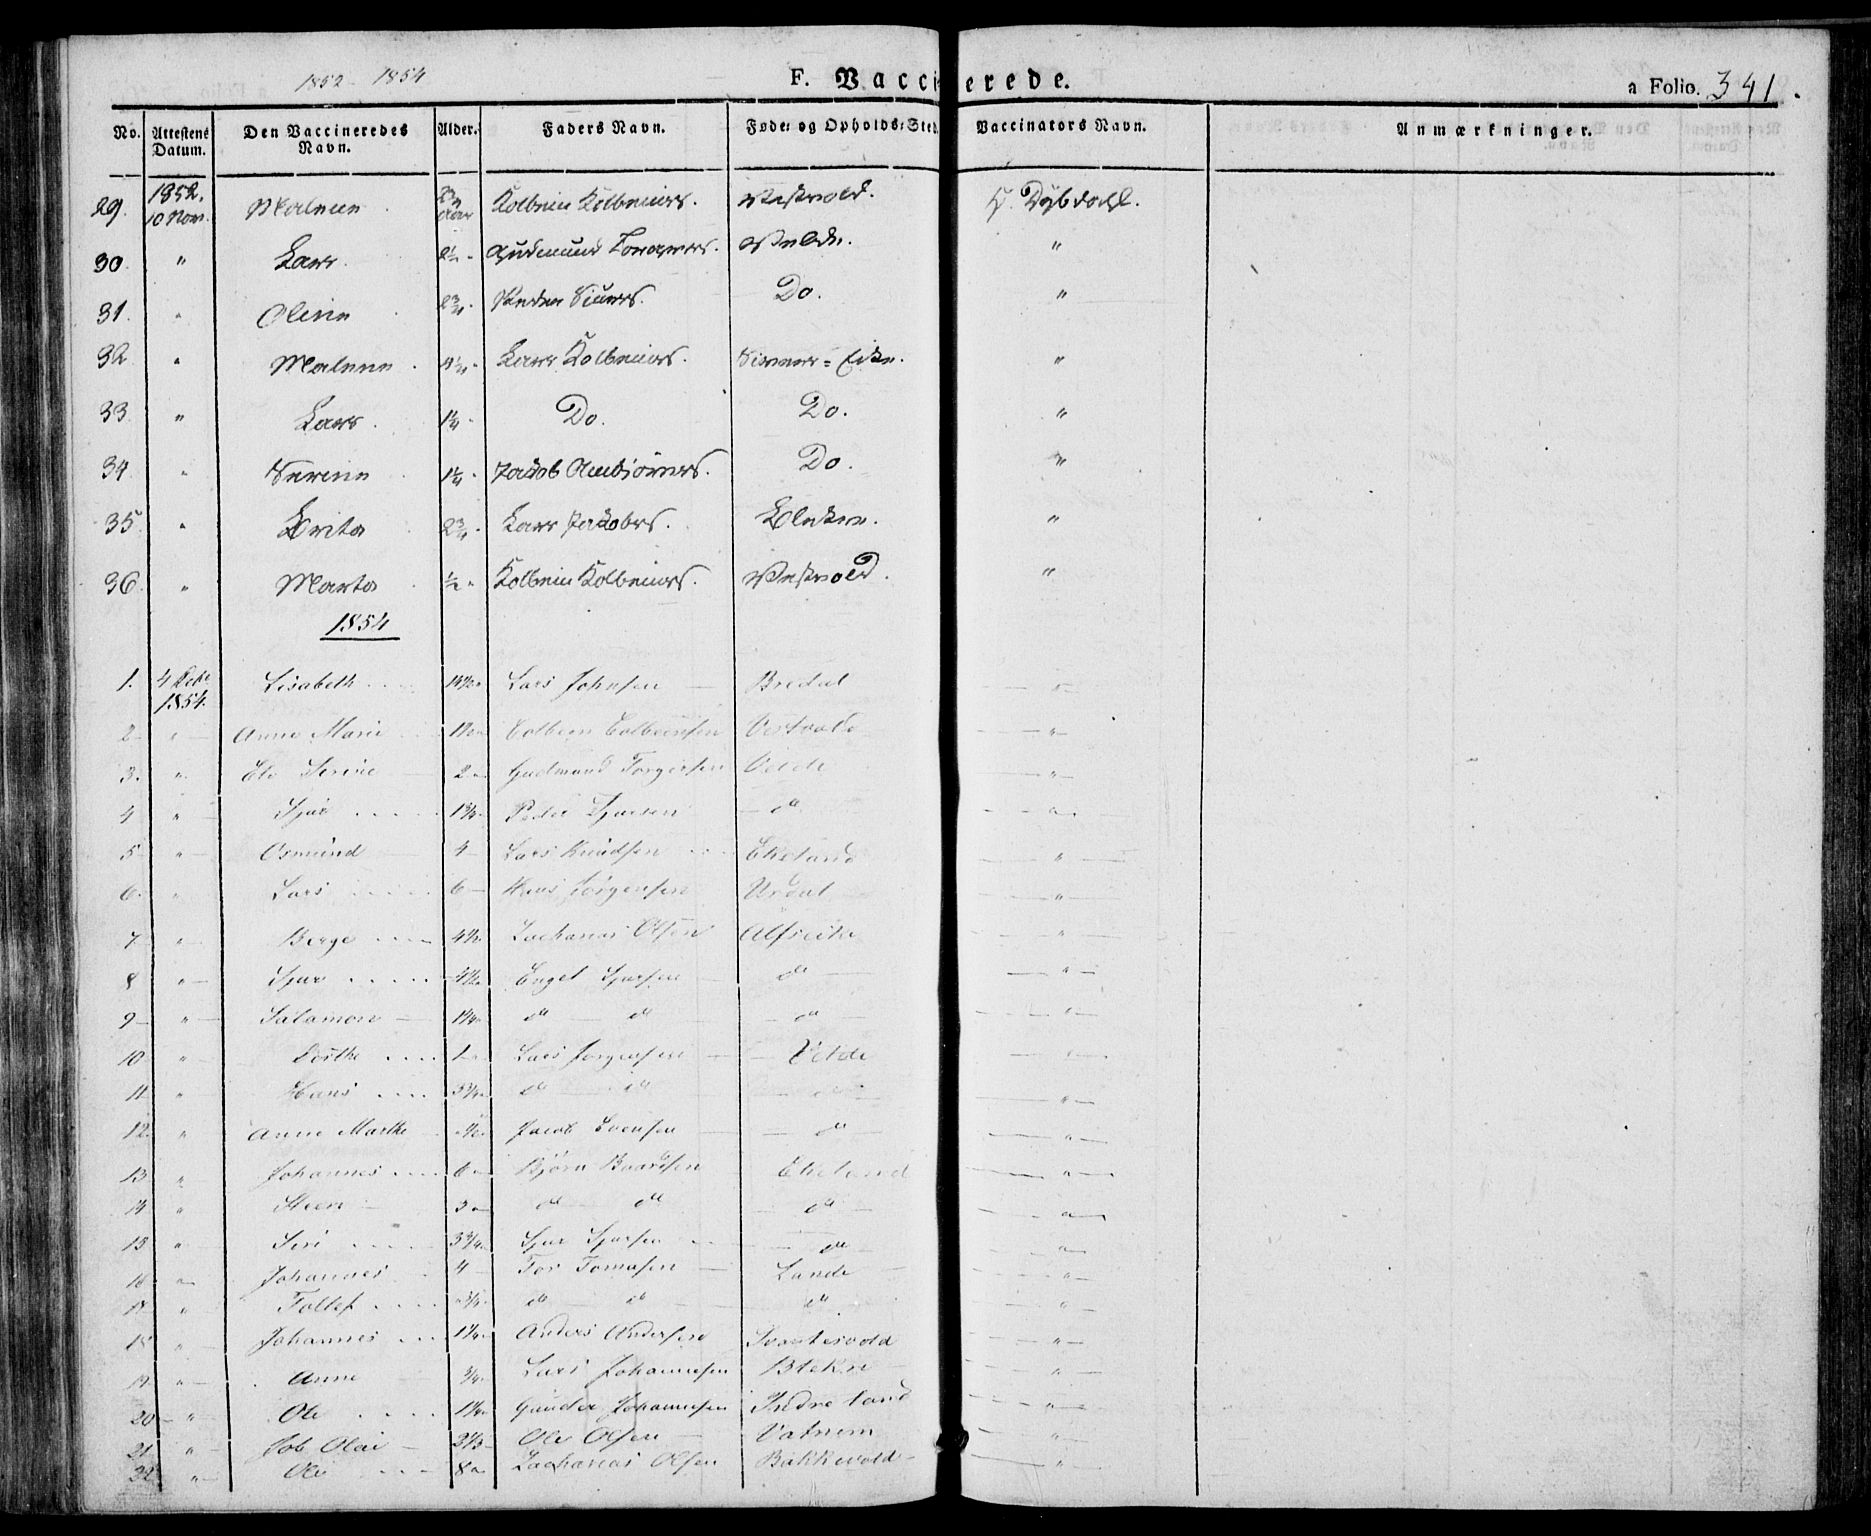 1852 - 1854
F. Vaccinerede.
a Folio. 341.
No. Attestens Datum. Den Vaccineredes Navn. Alder. Faders Navn. Føde- og Opholds-Sted Vaccinators Navn. Anmærkninger.
29. 1852. 10 Nov. Malene 2¾ Aar Kolbein Kolbeins. Vestvold. Dybdahl.
30. " Lars 2½ " Gudmund Torgers. Velde. "
31. " Oline 2¾ " Peder Siurs. Do. "
32 " Malene 4¼ " Lars Kolbeins. Eike. "
33 " Lars 1¼ " Do. Do. "
34 " Serine 1¼ " Jakob Do. "
35. " Brita 2¾ " Lars Jakobs. Blekne. "
36 " Marta ½ " Kolbein Kolbeins. Vestvold. "
1854
1. 4 1854. Lisabeth Lars Johnsen Bredal "
2 " Anne Marie Colbeen Colbeensen Vestvold "
3. " Ele Serine 2 " Gudmund Torgersen Velde "
4 " Sjur 1¾ " Peder Sjursen do "
5 " Osmund 4 Lars Knudsen Ekeland "
6. " Lars 6 Hans Jørgensen Urdal "
7 " Berge 4½ Zacharias Olsen Alfseite "
8 " Sjur 4½ Engel Sjursen do "
9 " Salamon 1¼ do do do "
10 " Dorthe 1 Lars Jørgensen Velde "
11 " Hans 3¾ do do do "
12. " Anne Marthe ½ Jacob Evensen do "
13 " Johannes 6 Bjørn Baardsen Ekeland "
14 " Steen 3 do do do "
15 " Siri 3¾ Sjur Sjursen do "
16 " Johannes 4 Tor Tomasen Lande "
17 " Tollef ¾ do do do "
18 " Johannes 1¼ Anders Andersen Svartesvold "
19 " Anne ¾ Lars Johannesen Blekne "
20 " Ole 1¼ Gunder Johannesen Indre land "
21 " Job Olai 2⅓ Ole Olsen Vatnem "
" Ole 8 Zacharias Olsen Bakkevold "